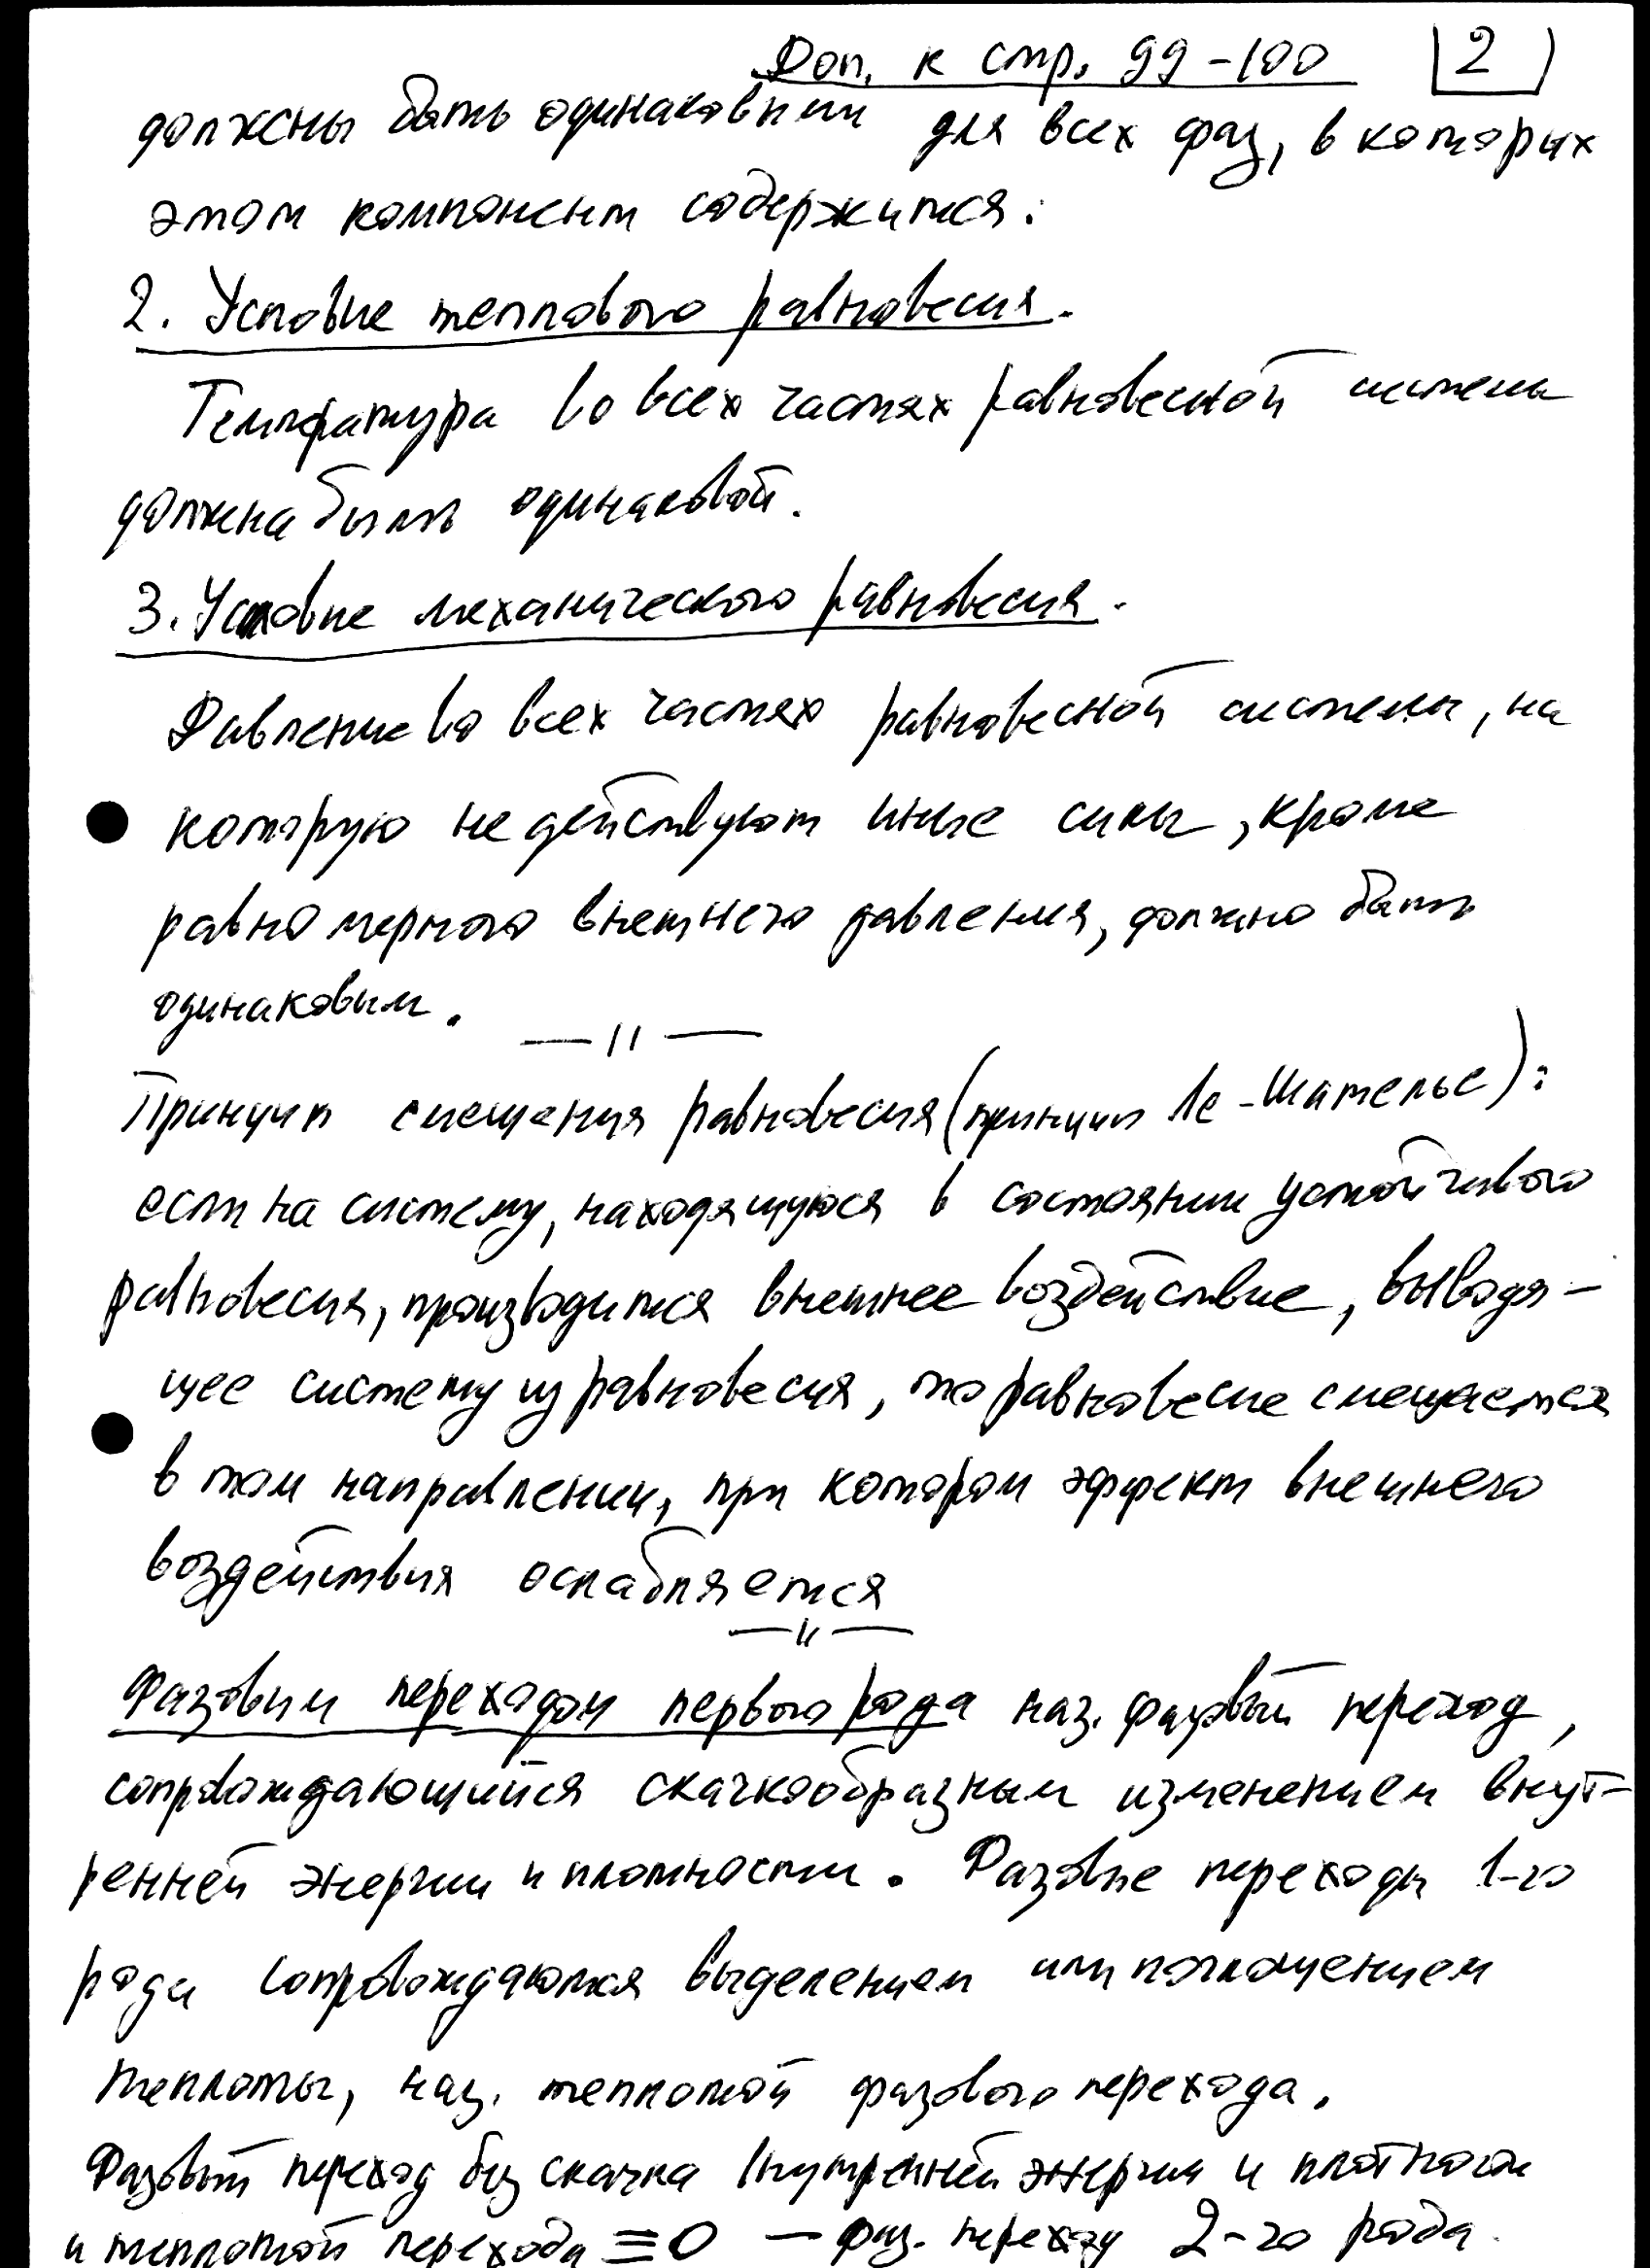 Доп. к стр. 99-100 2
должны быть одинаковыми для всех фаз, в которых
этот компонент содержится.
2. Условие теплового равновесия.
Температура во всех частях равновесной системы
должна быть одинаковой.
3. Условие механического равновесия.
Давление во всех частях равновесной системы, на
которую не действуют иные силы, кроме
равномерного внешнего давления, должно быть
одинаковым.
— || —
Принцип смещения равновесия (принцип Ле-Шателье):
если на систему, находящуюся в состоянии устойчивого
равновесия, производится внешнее воздействие, выводя-
щее систему из равновесия, то равновесие смещается
в том направлении, при котором эффект внешнего
воздействия ослабляется
— || —
Фазовым переходом первого рода наз. фазовый переход,
сопровождающийся скачкообразным изменением внут-
ренней энергии и плотности. Фазовые переходы 1-го
рода сопровождаются выделением или поглощением
теплоты, наз. теплотой фазового перехода.
Фазовый переход без скачка внутренней энергии и плотности
и теплотой перехода ≡ 0 — фаз. переход 2-го рода.